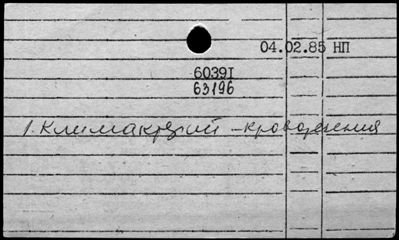 04.02.85 НП
60391
63196
1. Климактерий - кровотечения